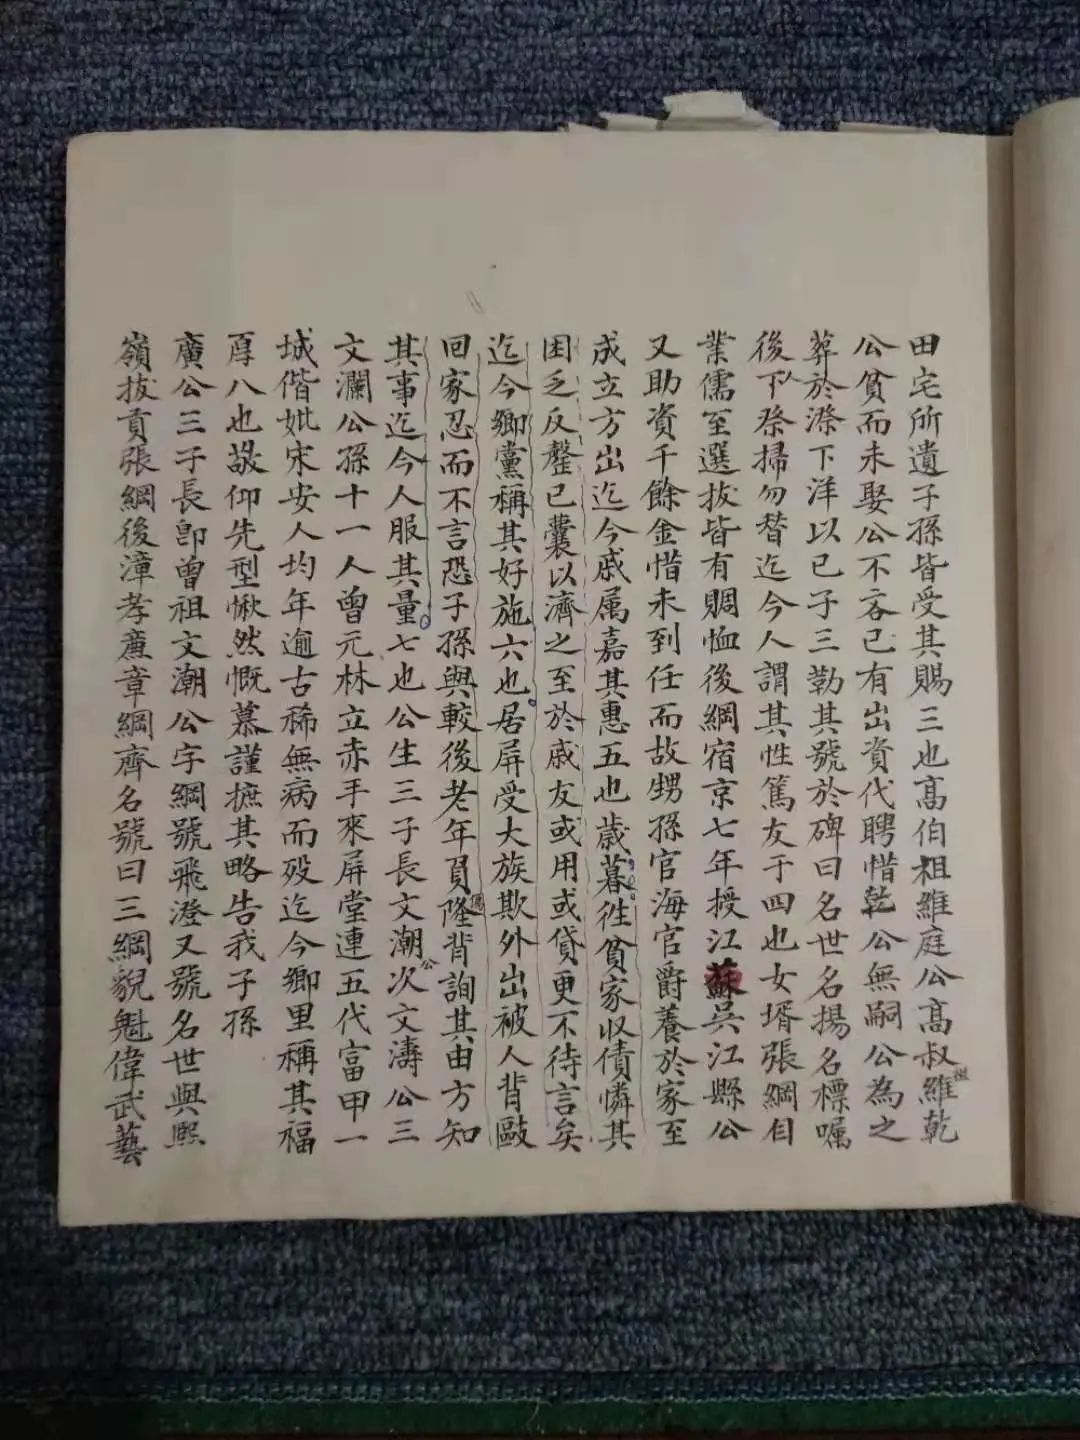 田宅所遺子孫皆受其賜三也高伯祖維庭公高叔祖維乾
公貧而未娶公不吝已有出資代聘惜乾公無嗣公為之
葬於漈下洋以已子三勤其號於碑曰名世名揚名標囑
後下祭掃勿替迄今人謂其性篤友于四也女壻張綱自
業儒至選拔皆有賙恤後綱宿京七年授江蘇吳江縣公
又助資千餘金惜未到任而故甥孫官海官爵養於家至
成立方出迄今戚属嘉其惠五也歲暮徃貧家収債憐其
困乏反罄已囊以濟之至於戚友或用或貸更不待言矣
迄今鄉黨稱其好施六也居屏受大族欺外出被人背毆
回家忍而不言恐子孫與較後老年員隆背詢其由方知
其事迄今人服其量七也公生三子長文潮公次文濤公三
文瀾公孫十一人曾元林立赤手來屏堂連五代富甲一
城偕妣宋安人均年逾古稀無病而殁迄今鄉里稱其福
厚八也敬仰先型愀然慨慕謹摭其略告我子孫
廣公三子長即曾祖文潮公字綱號飛澄又號名世與熙
嶺拔貢張綱後漳孝廉章綱齊名號曰三綱貌魁偉武藝